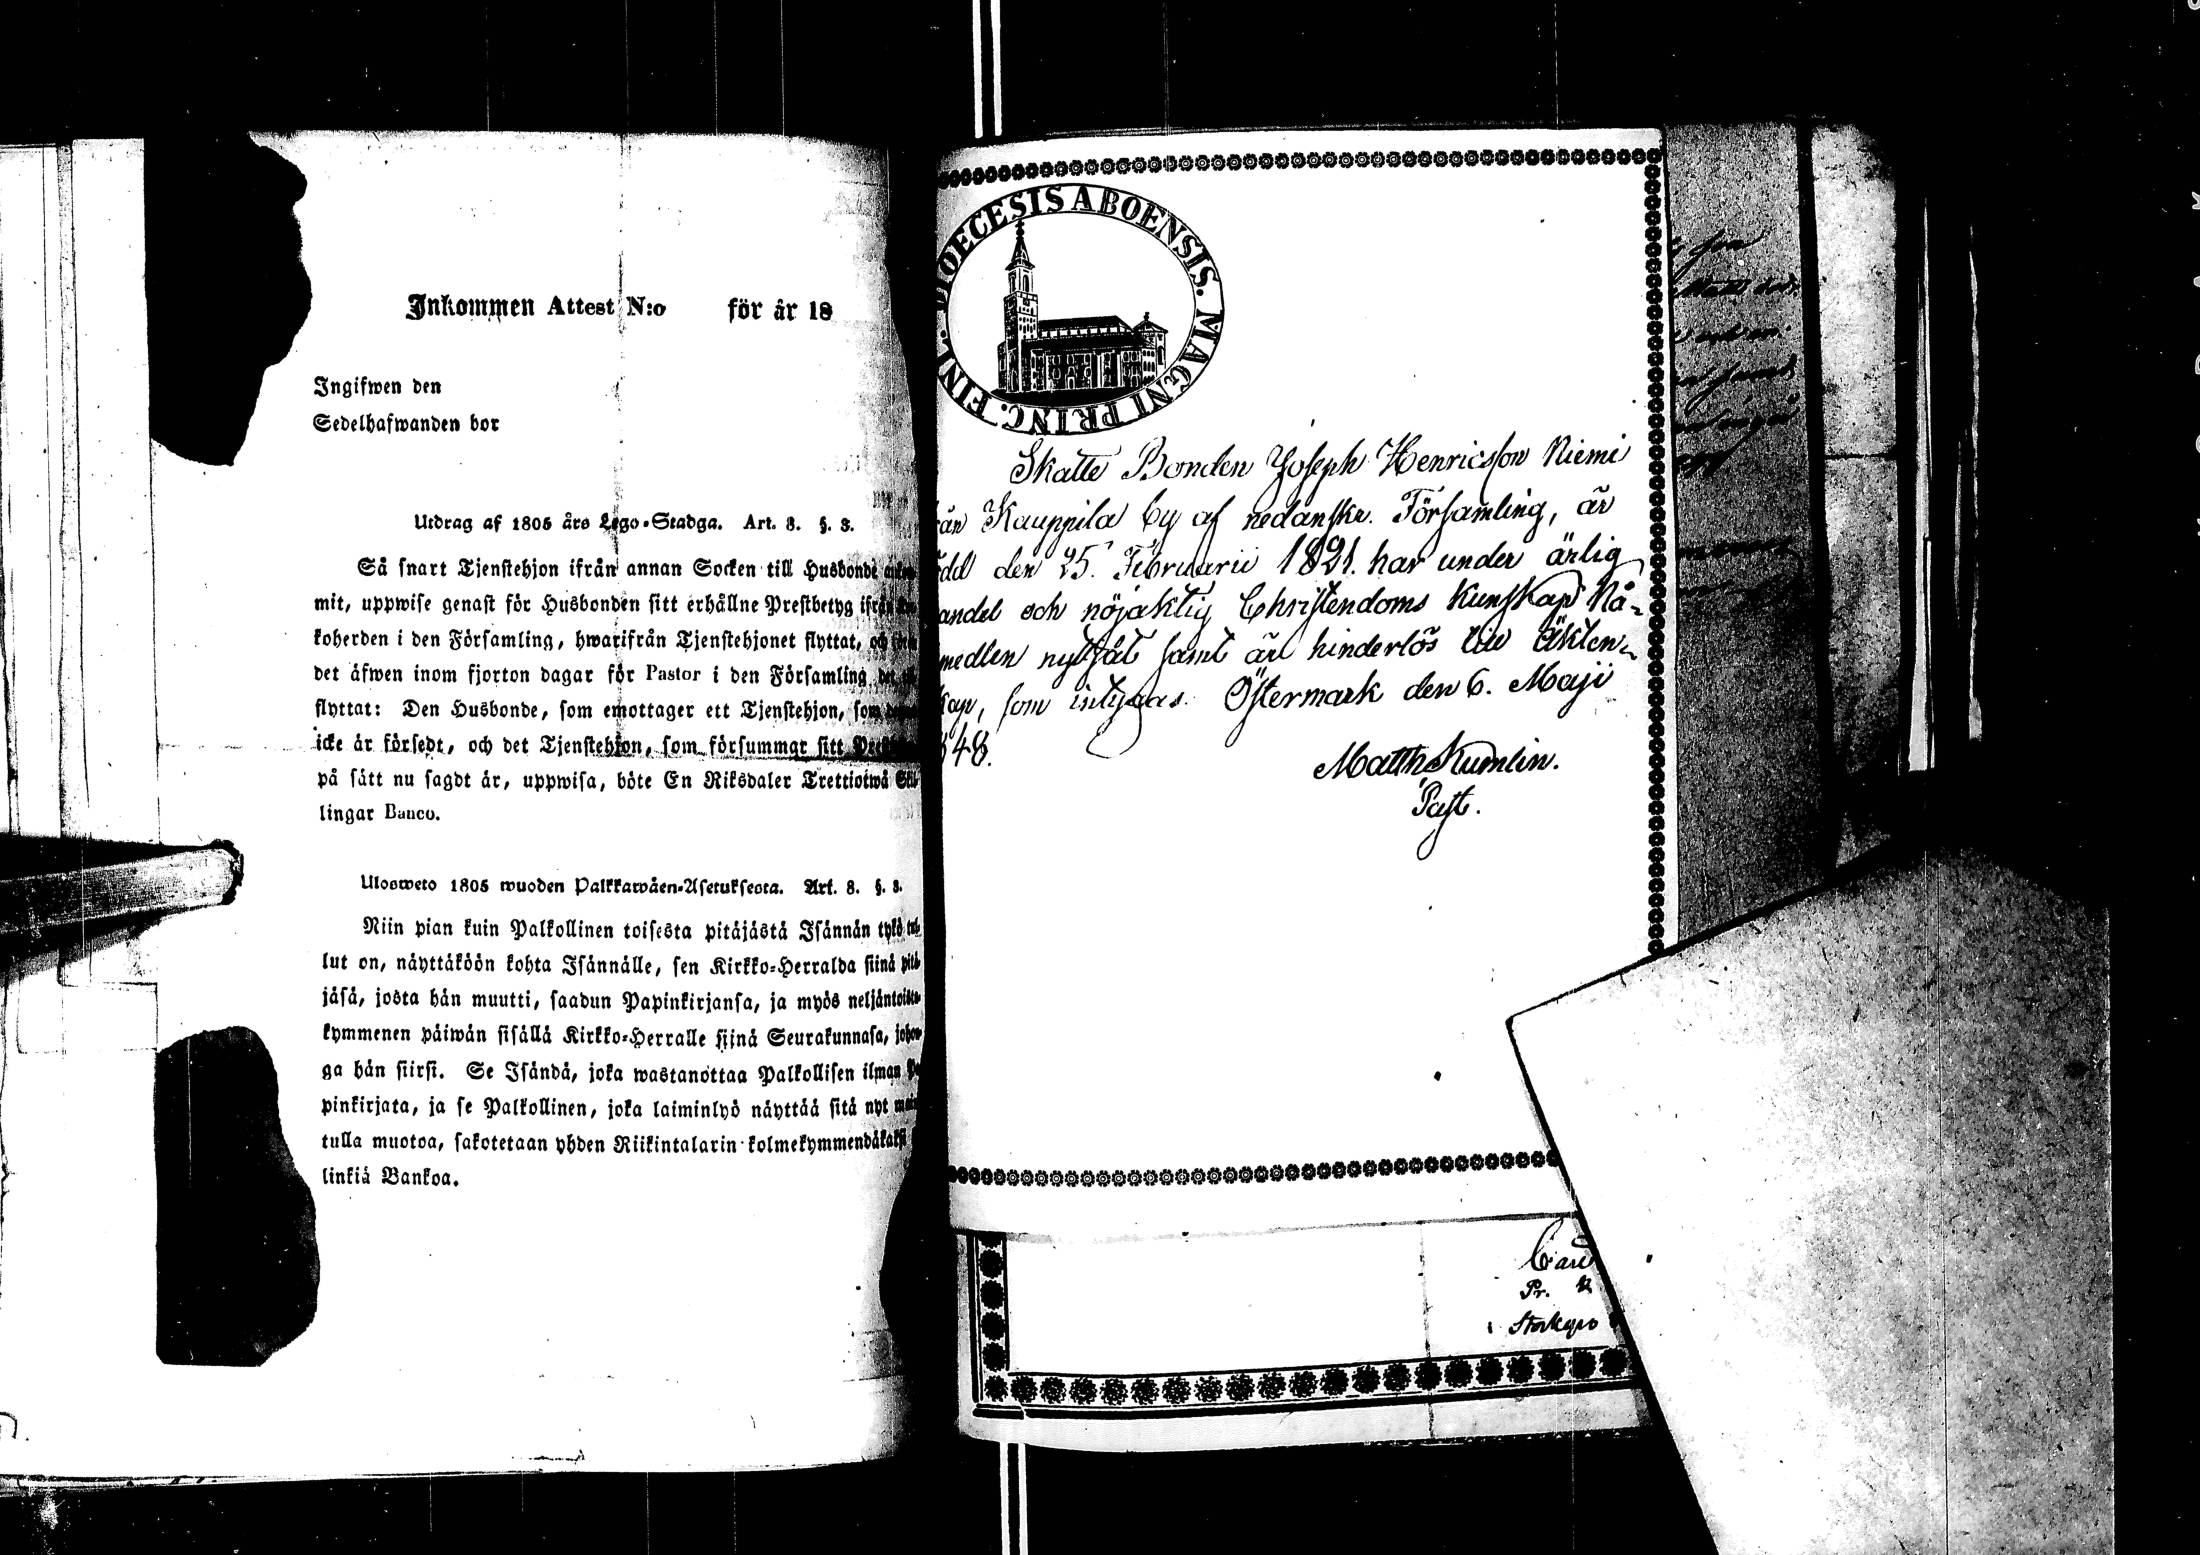 Inkommen Attest N:o för år 18
Ingifwen den
Sedelhafwanden bor
Utdrag af 1805 års Lego-Stadga. Art. 8. §. 8.
Så snart Tjenstehjon ifrån annan Socken till Husbonde
mit, uppwise genast för Husbonden sitt erhållne Prestbetyg ifrån
koherden i den Församling, hwarifrån Tjenstehjonet flyttat, och
det äfwen inom fjorton dagar för Pastor i den Församling
flyttat: Den Husbonde, som emottager ett Tjenstehjon, som
icke är försedt, och det Tjenstehjon, som försummar sitt
på sätt nu sagdt är, uppwisa, böte En Riksdaler Trettiotwå
lingar Banco.
Ulosweto 1805 wuoden Palkkawäen-Asetuksesta. Art. 8. §. 8.
Niin pian kuin Palkollinen toisesta pitäjästä Isännän tykö
lut on, näyttäköön kohta Isännälle, sen Kirkko-Herralda siinä
jäsä, josta hän muutti, saadun Papinkirjansa, ja myös neljäntoista
kymmenen päiwän sisällä Kirkko-Herralle siinä Seurakunnasa,
ga hän siirsi. Se Isändä, joka wastanottaa Palkollisen ilman
pinkirjata, ja se Palkollinen, joka laiminlyö näyttää sitä nyt
tulla muotoa, sakotetaan yhden Riikintalarin kolmekymmendäkaksi
linkiä Bankoa.
DIOECESIS ABOENSIS. MAGNI PRINC. FINL.
Skatte Bonden Joseph Henricsson Niemi
rån Kauppila by af nedanskr. Församling, är
född den 25. Februarii 1821. har under ärlig
andel och nöjaktig Christendoms Kunskap Nå-
medlen nyttjat samt är hinderlös till Äkten-
kap, som intygas. Östermark den 6. Maji
848.
Matth Kumlin.
Past.
Pr.
i Storkyro